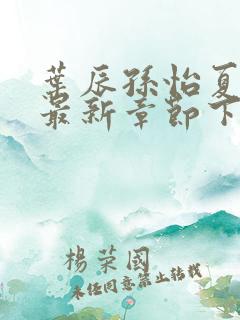 葉辰孫怡夏
最新章節下
楊荣國
未经同意禁止转载